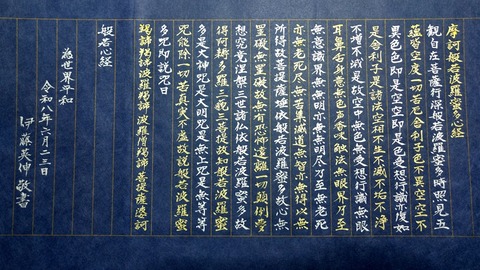 摩訶般若波羅蜜多心経
観自在菩薩行深般若波羅蜜多時照見五
蘊皆空度一切苦厄舎利子色不異空空不
異色色即是空空即是色受想行識亦復如
是舎利子是諸法空相不生不滅不垢不浄
不増不減是故空中無色無受想行識無眼
耳鼻舌身意無色声香味触法無眼界乃至
無意識界無無明亦無無明尽乃至無老死
亦無老死尽無苦集滅道無智亦無得以無
所得故菩提薩埵依般若波羅蜜多故心無
罣礙無罣礙故無有恐怖遠離一切顛倒夢
想究竟涅槃三世諸仏依般若波羅蜜多故
得阿耨多羅三藐三菩提故知般若波羅蜜
多是大神呪是大明呪是無上呪是無等等
呪能除一切苦真実不虚故説般若波羅蜜
多呪即説呪曰
羯諦羯諦波羅羯諦波羅僧羯諦菩提薩婆訶
般若心経
為世界平和
令和八年六月二三日
伊藤英伸 敬書